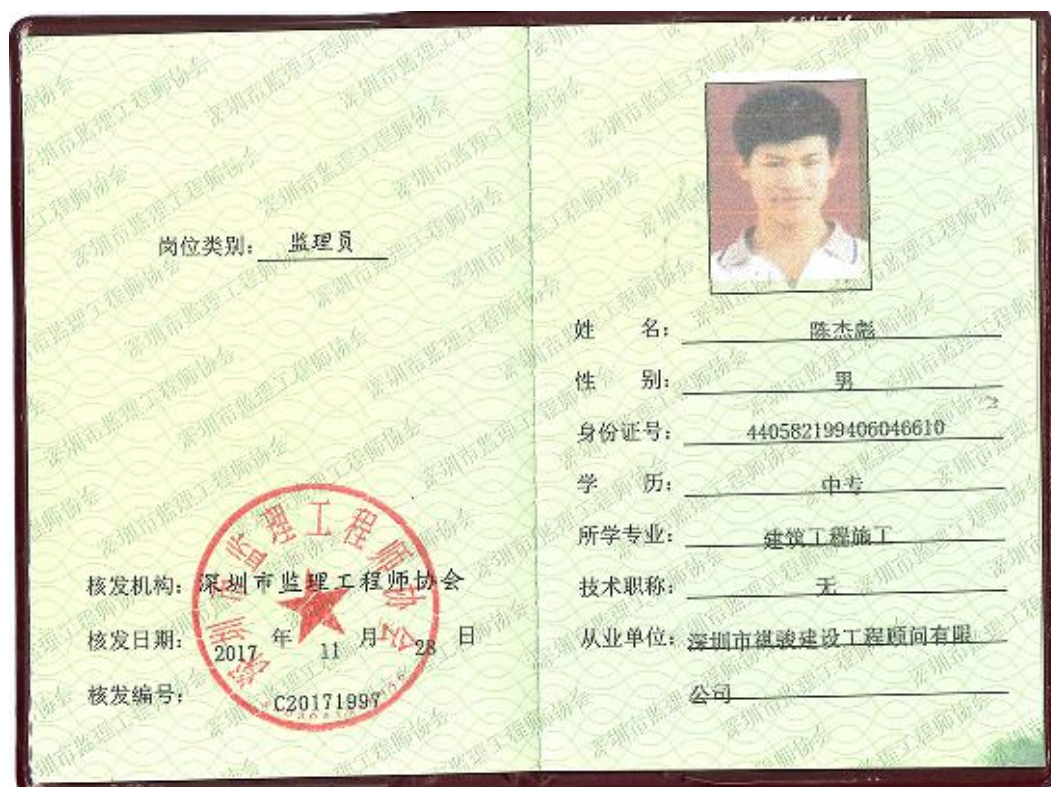 岗位类别：监理员
核发机构：深圳市监理工程师协会
核发日期：2017 年 11 月 28 日
核发编号：C20171997
深圳市监理工程师协会
姓 名：陈杰彪
性 别：男
身份证号：440582199406046610
学 历：中专
所学专业：建筑工程施工
技术职称：无
从业单位：深圳市祺骏建设工程顾问有限
公司